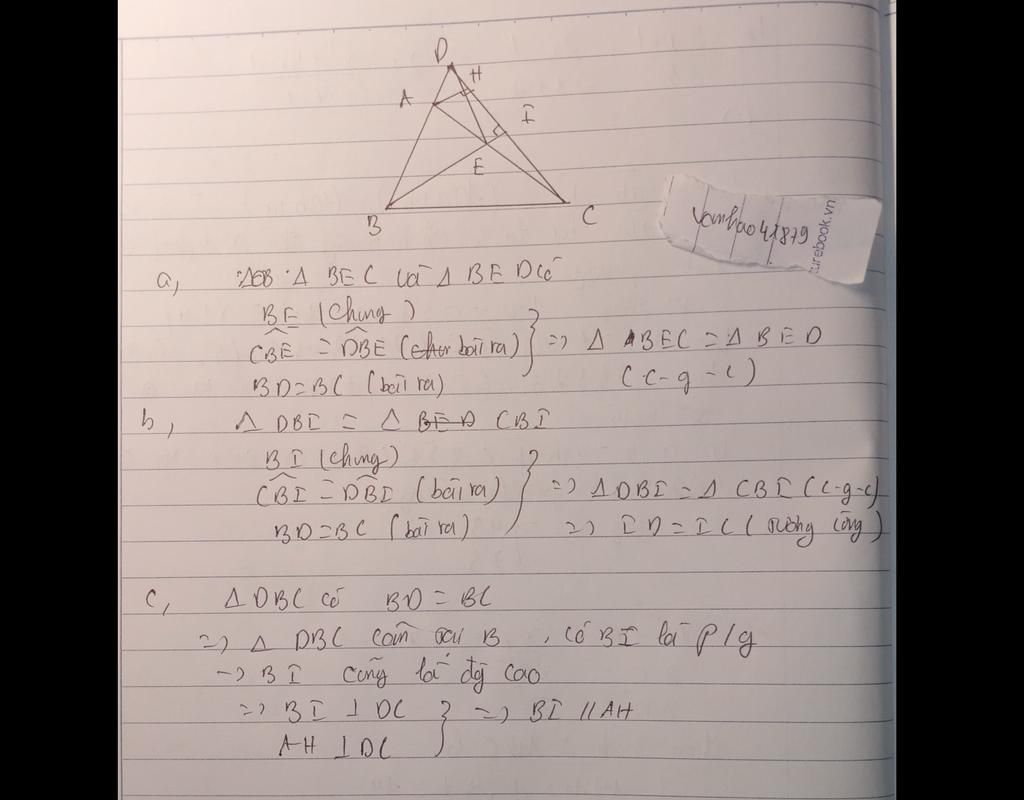 D
H
A
I
E
B
C
vanhao41879
turebook.vn
a, Δ BEC và Δ BED có
BE (Chung)
CBE = DBE (bài ra) } => Δ BEC = Δ BED
BD = BC (bài ra) (c-g-c)
b, Δ DBI = Δ CBI
BI (Chung)
CBI = DBI (bài ra) } => Δ DBI = Δ CBI (c-g-c)
BD = BC (bài ra) => ID = IC (tương ứng)
c, Δ DBC có BD = BC
=> Δ DBC cân tại B, có BI là p/g
-> BI cũng là đg cao
=> BI ⊥ DC } => BI // AH
AH ⊥ DC